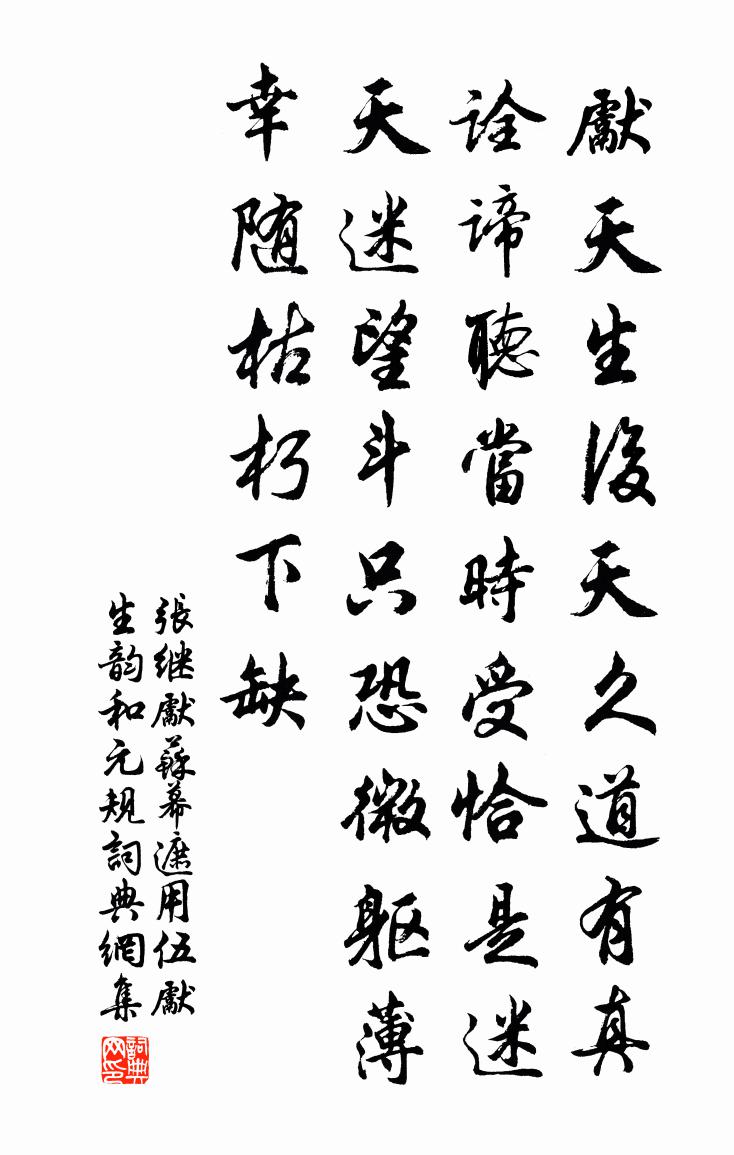 獻天生後天久道有真
詮諦聽當時受恰是迷
天迷望斗只恐微躯薄
幸随枯朽下缺
張继獻蘇幕遮用伍獻
生韵和元規詞典網集
詞典网印